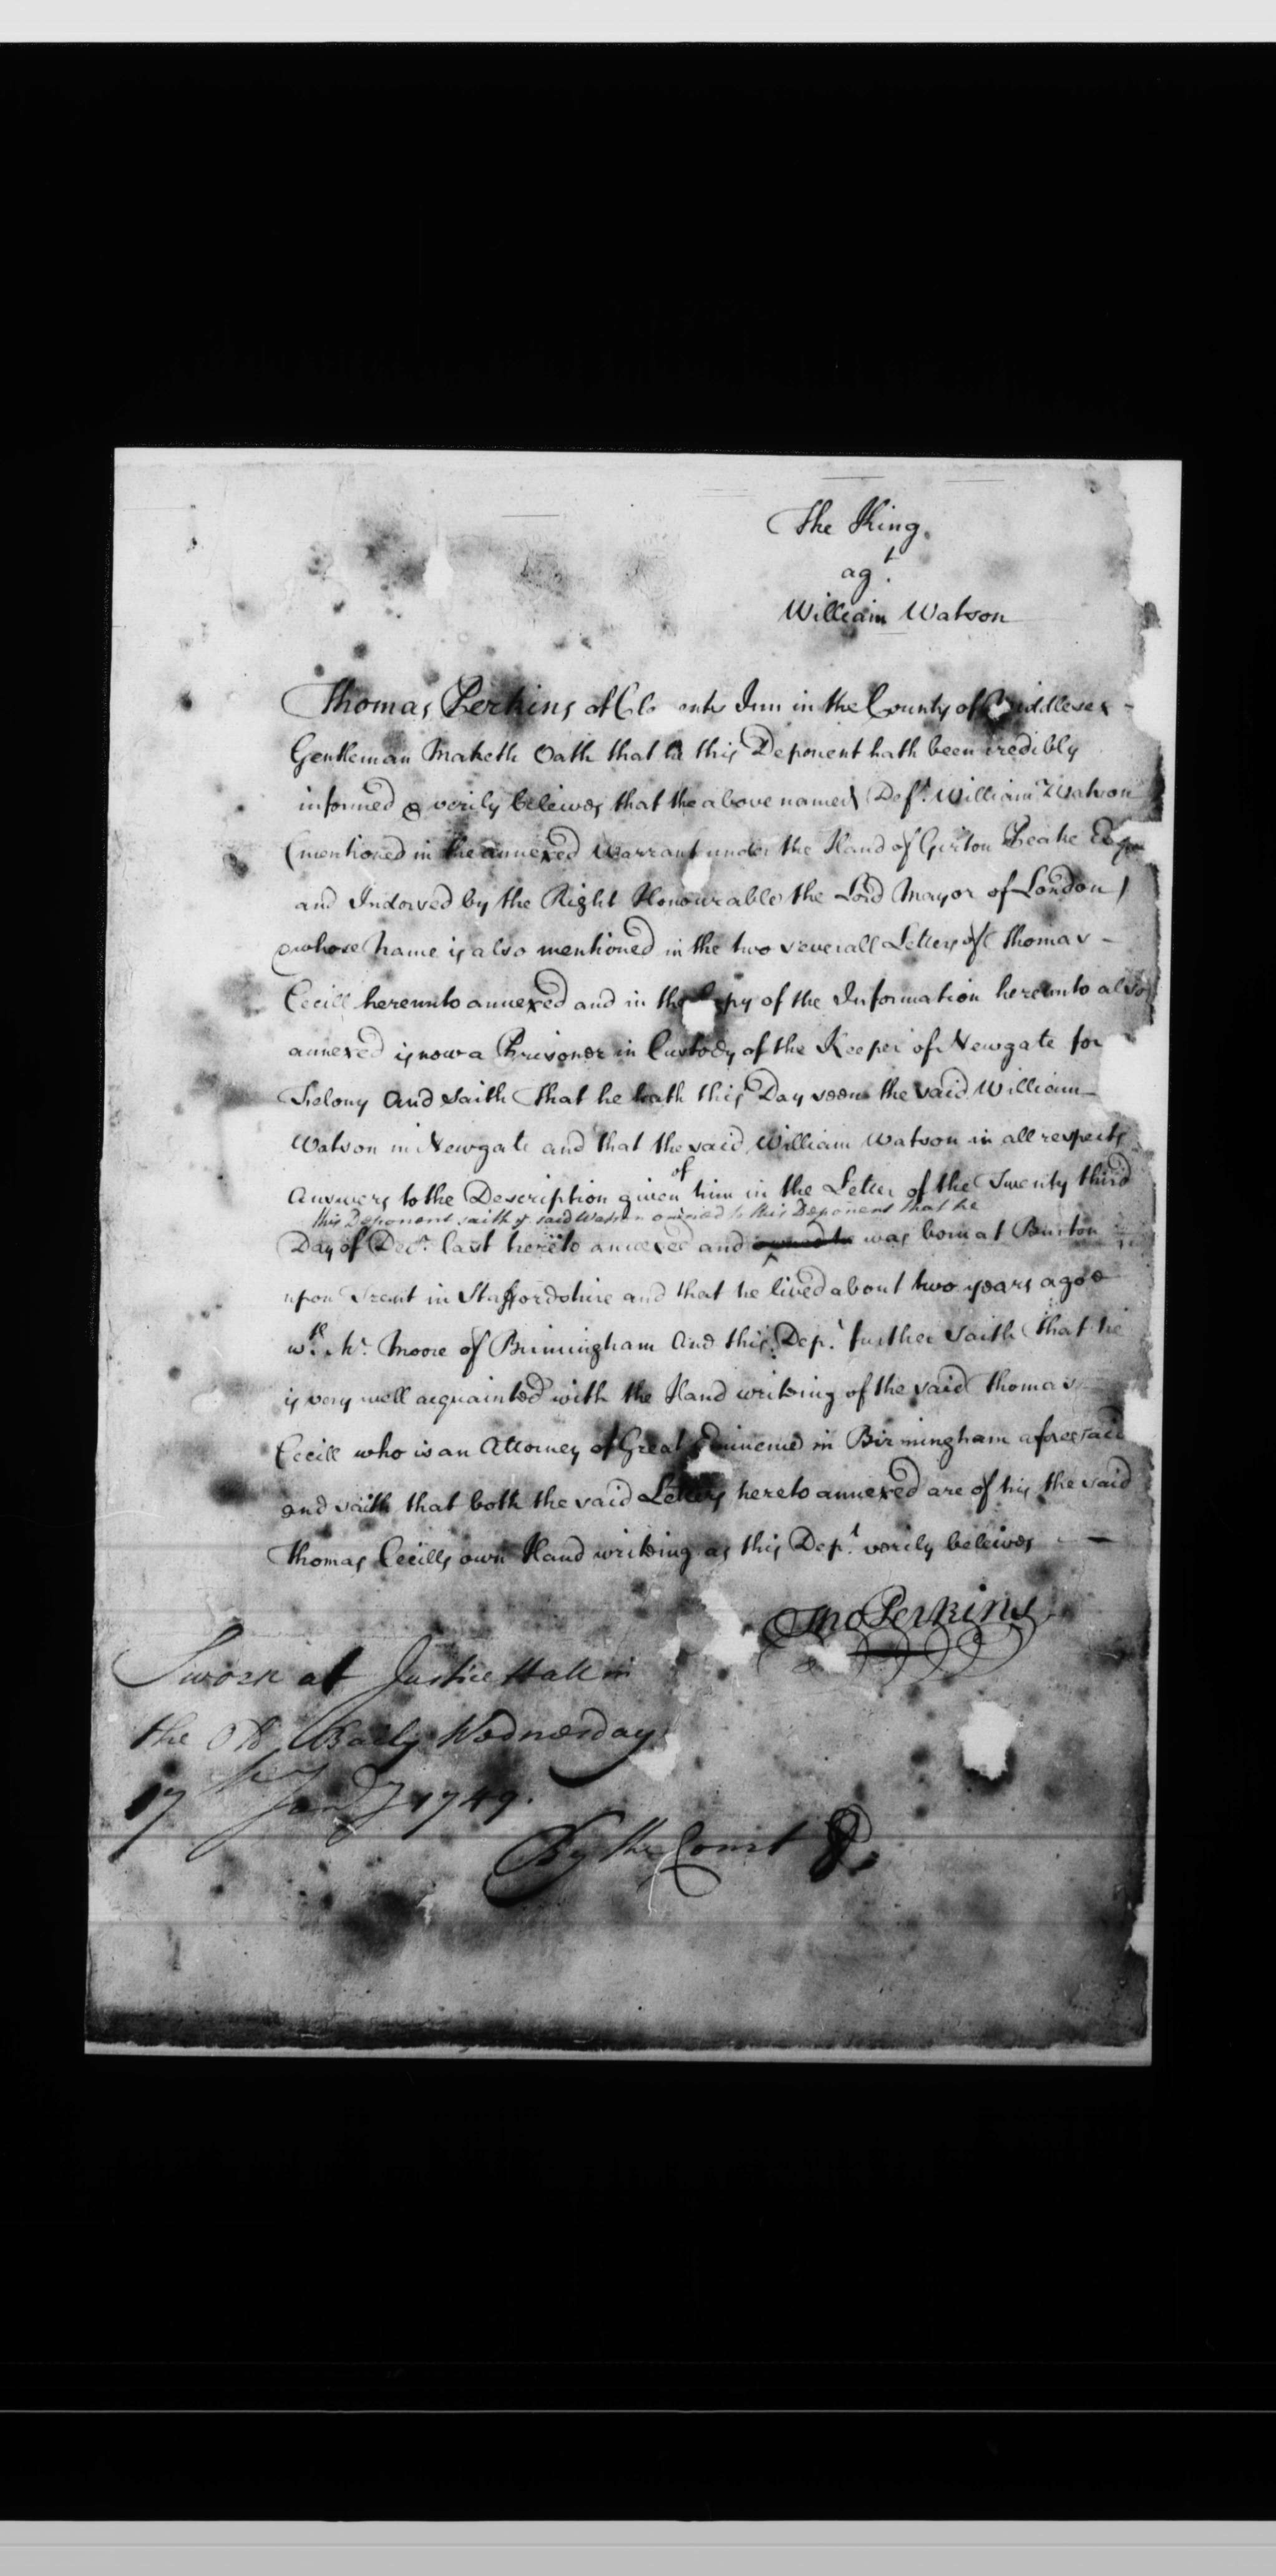 The King
agt.
William Watson
Thomas Perkins of Cle ents Inn in the County of Middlesex -
Gentleman Maketh Oath that he this Deponent hath been credibly
informed & verily beleives that the above named Deft. William Watson
(mentioned in the annexed Warrant under the Hand of Girton Peake Esqr
and Indorsed by the Right Honourable the Lord Mayor of London)
& whose Name is also mentioned in the two severall Letters of Thomas -
Cecill hereunto annexed and in the Copy of the Information hereunto also
annexed is now a Prisoner in Custody of the Keeper of Newgate for
Felony And Saith That he hath this Day seen the said William -
Watson in Newgate and that the said William Watson in all respects
of
Answers to the Description given him in the Letter of the Twenty third
this Deponent saith yt. said Watson owned to this Deponent that he
Day of Decr. last hereto annexed and owned he was born at Burton
upon Trent in Staffordshire and that he lived about two years agoe
wth. Mr. Moore of Birmingham And this Dept. further Saith That he
is very well acquainted with the Hand writing of the said Thomas
Cecill who is an Attorney of Great Eminence in Birmingham aforesaid
and saith that both the said Letters hereto annexed are of his the said
Thomas Cecills own Hand writing as this Dept. verily beleives -
Tho Perkins
Sworn at Justice Hall in
the Old Baily Wednesday
17th Janry 1749.
By the Court